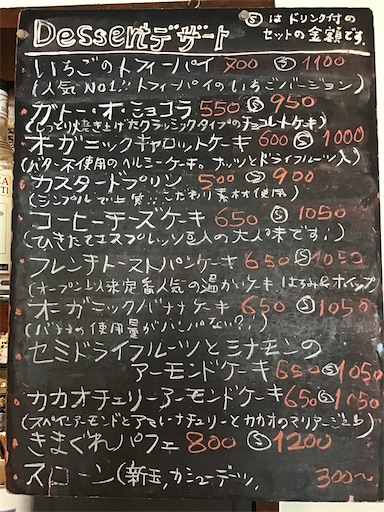 Dessert デザート
Ⓢ は ドリンク付の
セットの金額です。
いちごのトフィーパイ 700 Ⓢ 1100
(人気NO1!! トフィーパイのいちごバージョン)
ガトー・オ・ショコラ 550 Ⓢ 950
(しっとり焼き上げたクラシックタイプのチョコレートケーキ)
オーガニックキャロットケーキ 600 Ⓢ 1000
(バター不使用のヘルシーケーキ。ナッツとドライフルーツ入)
カスタードプリン 500 Ⓢ 900
(シンプルで上質!! こだわり素材使用)
コーヒーチーズケーキ 650 Ⓢ 1050
(ひきたてエスプレッソ豆入の大人味です!)
フレンチトーストパンケーキ 650 Ⓢ 1050
(オープン以来定番人気の温かいケーキ はちみつ&ホイップ)
オーガニックバナナケーキ 650 Ⓢ 1050
(バナナの使用量がハンパない??)
セミドライフルーツとシナモンの
アーモンドケーキ 650 Ⓢ 1050
カカオチェリーアーモンドケーキ 650 Ⓢ 1050
(スペインアーモンドとアメリカンチェリーとカカオのマリアージュ)
きまぐれパフェ 800 Ⓢ 1200
スコーン(新玉, カシューデーツ, 300〜